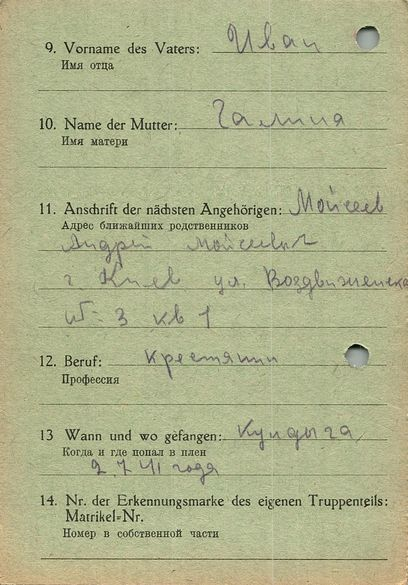 9. Vorname des Vaters: Иван
Имя отца
10. Name der Mutter: Галина
Имя матери
11. Anschrift der nächsten Angehörigen: Мойсеев
Адрес ближайших родственников
Андрій Мойсеевич
г. Киев ул. Воздвиженска
№ 3 кв 1
12. Beruf: крестянин
Профессия
13 Wann und wo gefangen:
Когда и где попал в плен
2 7 41 года
14. Nr. der Erkennungsmarke des eigenen Truppenteils:
Matrikel=Nr.
Номер в собственной части